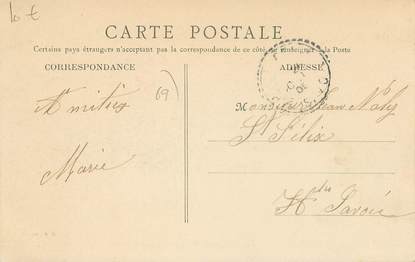 10 €
CARTE POSTALE
Certains pays étrangers n'acceptant pas la correspondance de ce côté, se renseigner à la Poste
CORRESPONDANCE
ADRESSE
Amitiés
69
Marie
Monsieur Jean
St Félix
Hte Savoie